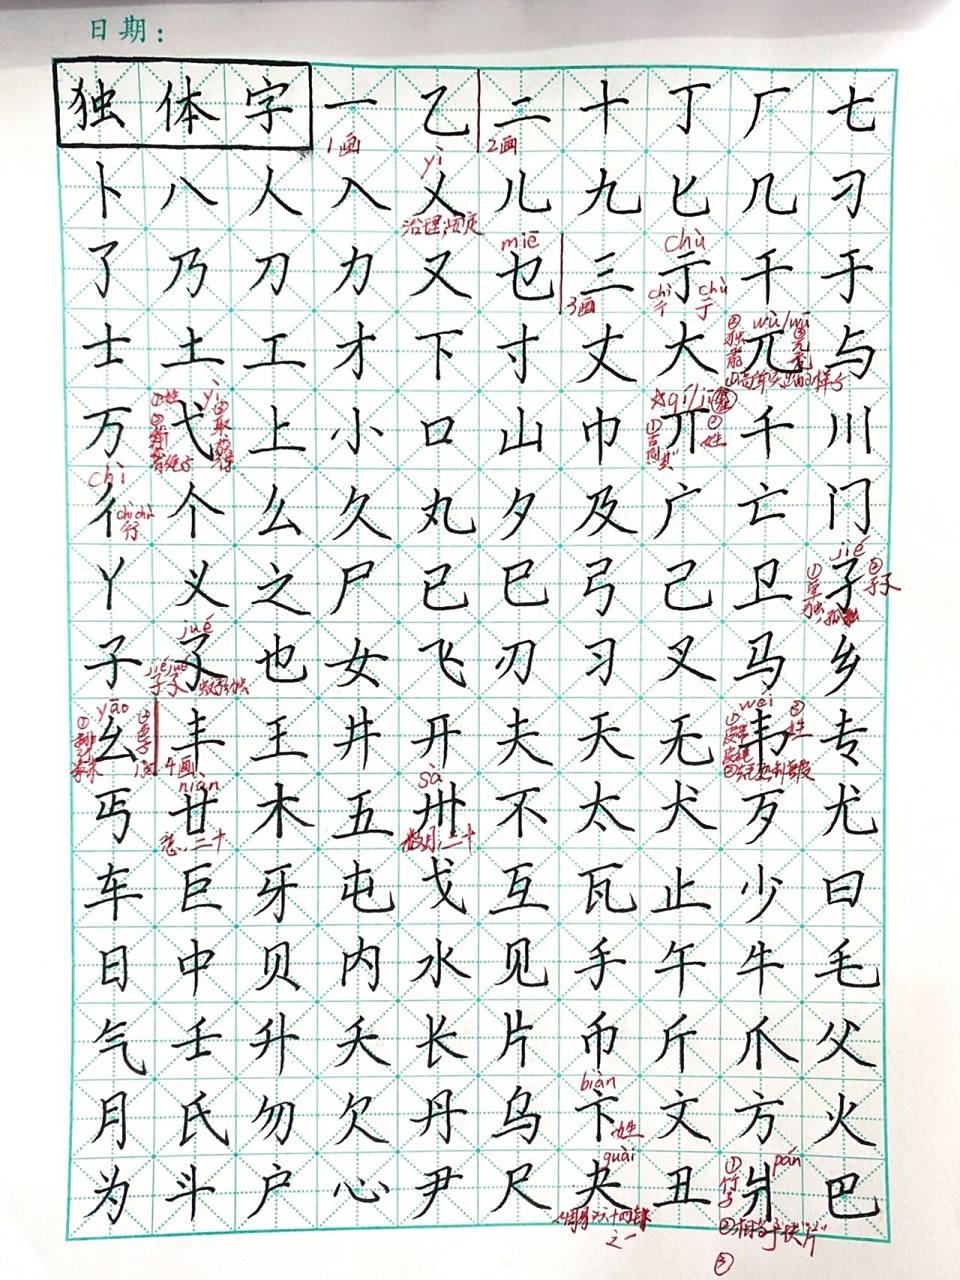 日期：
独体字一乙二十丁厂七
1画 2画
yì
卜八人入乂儿九匕几刁
治理,安定
miē chù
了乃刀力又乜三亍干于
3画 chì chù
彳亍
wù/wū
士土工才下寸丈大兀与
yì qí/jī
①姓
万弋上小口山巾丌千川
②姓
chì
彳个么久丸夕及广亡门
chì chù
jié
丫义之尸已巳弓己卫孑
①单独,孤独
②孑孓
jué
子孓也女飞刃习叉马乡
jié jué
孑孓
yāo wéi
幺丰王井开夫天无韦专
4画
②姓
niàn sà
丐廿木五卅不太犬歹尤
车巨牙屯戈互瓦止少曰
日中贝内水见手午牛毛
气壬升夭长片币斤爪父
biàn
月氏勿欠丹乌卞文方火
姓
guài pán
为斗户心尹尺夬丑爿巴
②相当于"块""片"
之一
③